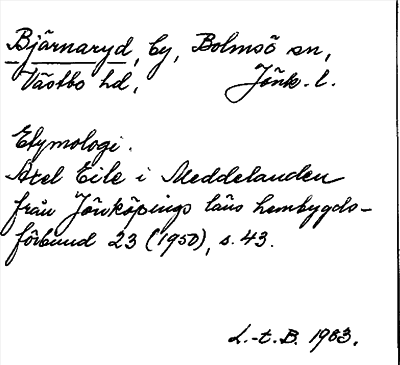 Bjärnaryd, by, Bolmsö sn,
Västbo hd, Jönk. l.
Etymologi.
Axel Eile i Meddelanden
från Jönköpings läns hembygds-
förbund 23 (1950), s. 43.
L.-t. B. 1963.